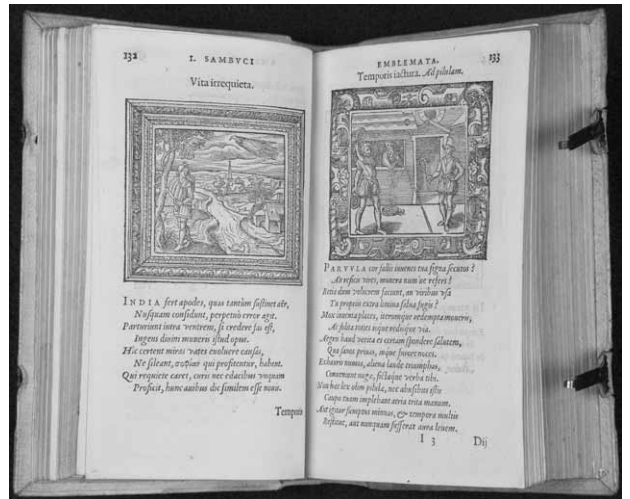 132
I. SAMBVCI
Vita irrequieta.
INDIA fert apodes, quas tantùm sustinet aër,
Nusquam considunt, perpetuò error agit.
Parturiunt intra ventrem, si credere fas est,
Ingens diuini muneris istud opus.
Hîc certent miras vates euoluere causas,
Ne sileant, qui profitentur, habent.
Qui requiete caret, curis nec edacibus vnquam
Proficit, hunc auibus dic similem esse nouis.
Temporis
EMBLEMATA.
133
Temporis iactura. Ad pilulam.
PARVVLA cur fallis iuuenes tua signa secutos?
An reficis vires, munera num ve refers?
Retia dum volucrem faciunt, an viribus vsa
Tu propriis extra limina salua fugis?
Mox inuenta places, iterumque redempta moueris,
Ac solita vires itque reditque via.
Aegro haud verita es certam spondere salutem,
Qua sanos priuas,
Exhauris numos, aliena laude triumphas,
Conueniunt nugae, fictaque verba tibi.
Non hac lex olim pilulae, nec abusibus istis
Caupo tuam implebant atria trita manum.
Aut igitur sumptus minuas, & tempora multis
Restitue, aut nunquam
aura leuem.
I 3
Dij